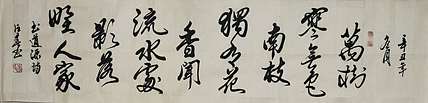 辛丑年
冬月
萬樹
寒無色
南枝
獨有花
香聞
流水處
影落
野人家
书道源詩